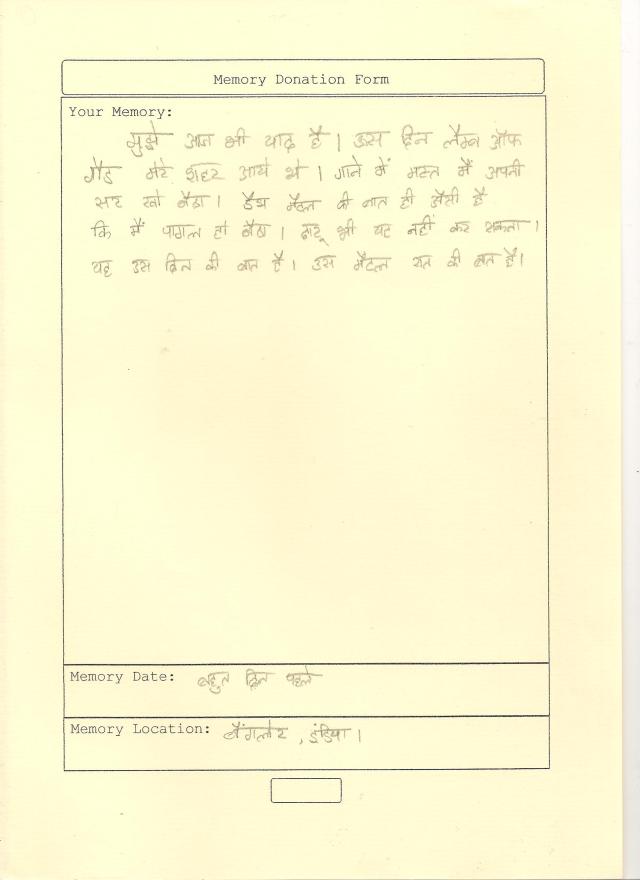 Memory Donation Form
Your Memory:
मुझे आज भी याद है । उस दिन लैम्ब ऑफ
गौड मेरे शहर आये थे । गाने में मस्त मैं अपनी
खो बैठा । डैथ मैटल की बात ही ऐसी है
कि मैं पागल हो बैठा । दारू भी यह नहीं कर सकता ।
यह उस दिन की बात है । उस मैटल रात की बात है ।
Memory Date: बहुत दिन पहले
Memory Location: बैंगलोर , इंडिया ।